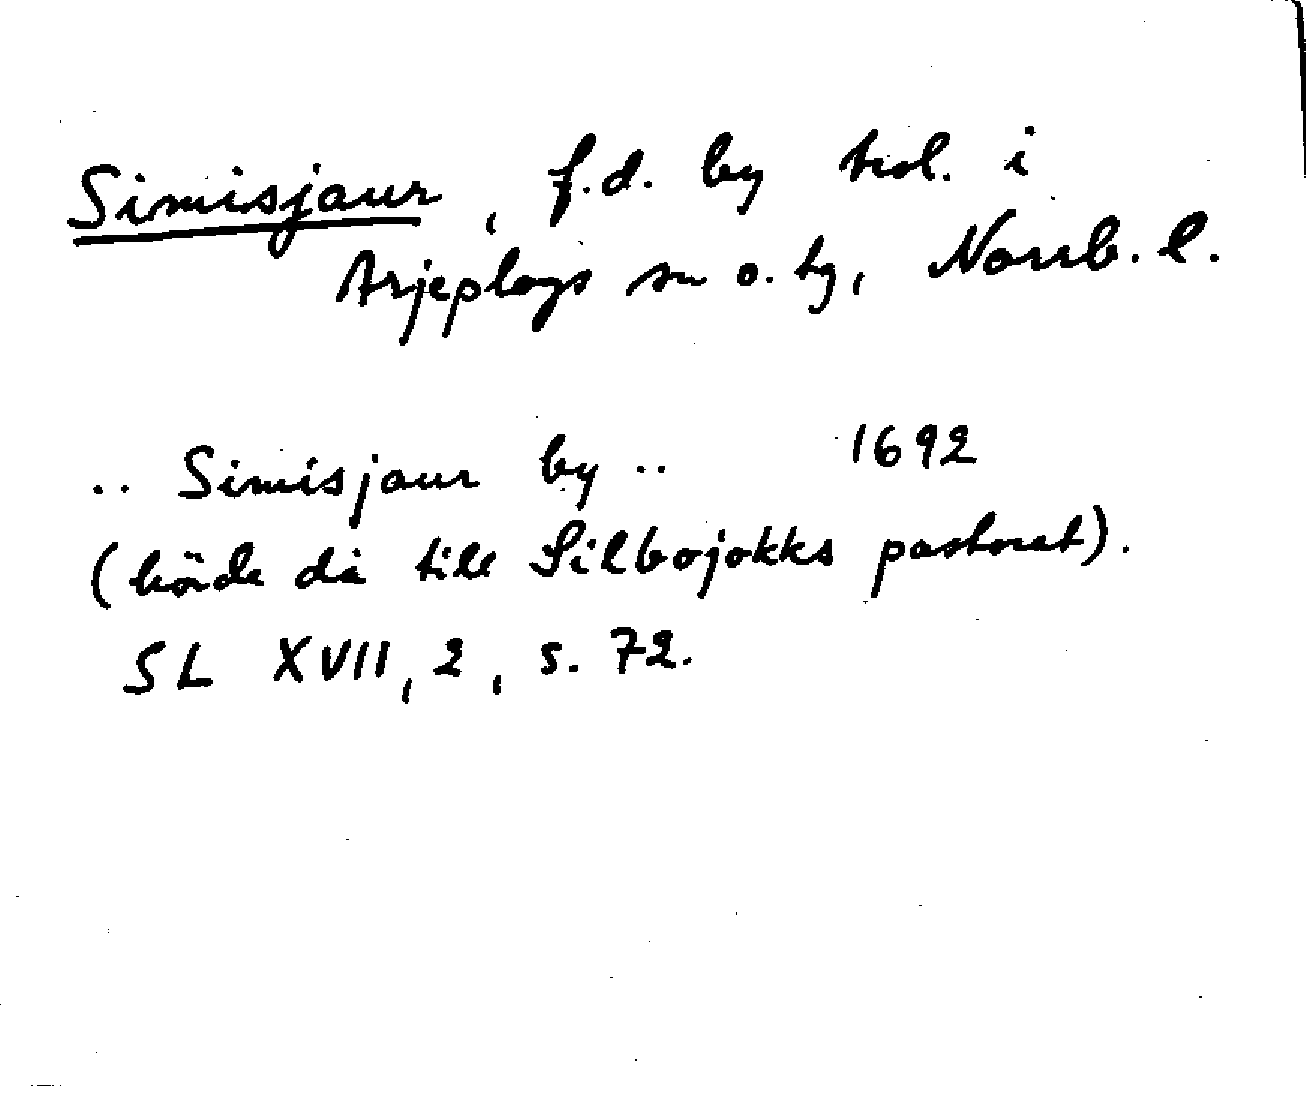 Simisjaur, f.d. by trol. i
Arjeplogs sn o. tg, Norrb. l.
.. Simisjaur by .. 1692
(hörde då till Silbojokks pastorat).
SL XVII, 2, s. 72.